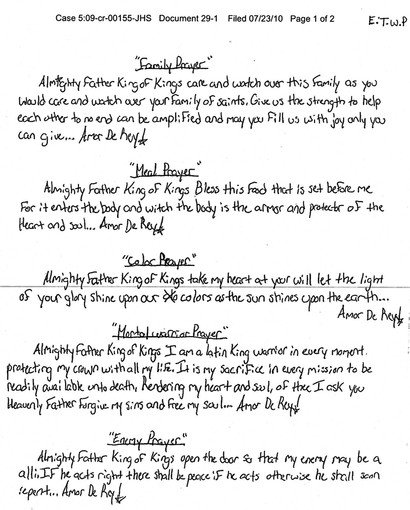 Case 5:09-cr-00155-JHS Document 29-1 Filed 07/23/10 Page 1 of 2
E.T.W.P
"Family Prayer"
Almighty Father King of Kings care and watch over this family as you
would care and watch over your family of saints. Give us the strength to help
each other to no end can be amplified and may you fill us with joy only you
can give... Amor De Rey!
"Meal Prayer"
Almighty Father King of Kings Bless this food that is set before me
For it enters the body and witch the body is the armor and protector of the
Heart and soul... Amor De Rey!
"Color Prayer"
Almighty Father King of Kings take my heart at your will let the light
of your glory shine upon our colors as the sun shines upon the earth...
Amor De Rey!
"Mortal warrior Prayer"
Almighty Father King of Kings I am a latin King warrior in every moment.
protecting my crown with all my life. It is my sacrifice in every mission to be
readily available unto death, Rendering my heart and soul, of thee I ask you
Heavenly Father forgive my sins and free my soul... Amor De Rey!
"Enemy Prayer"
Almighty Father King of Kings open the door so that my enemy may be a
alli. If he acts right there shall be peace if he acts otherwise he shall soon
repent... Amor De Rey!